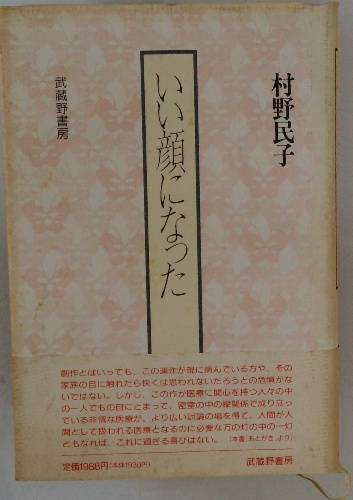 村野民子
いい顔になった
武蔵野書房
創作とはいっても、この連作が現に病んでいる方や、その
家族の目に触れたら快くは思われないだろうとの危惧がな
いではない。しかし、この作が医療に関心を持つ人々の中
の一人でもの目にとまって、密室の中の縦関係で成り立っ
ている非情な医療が、より広い討論の場を得て、人間が人
間として扱われる医療となるのに必要な万の灯の中の一灯
ともなれば、これに過ぎる喜びはない。（本書「あとがき」より）
定価1988円（本体1930円）
武蔵野書房